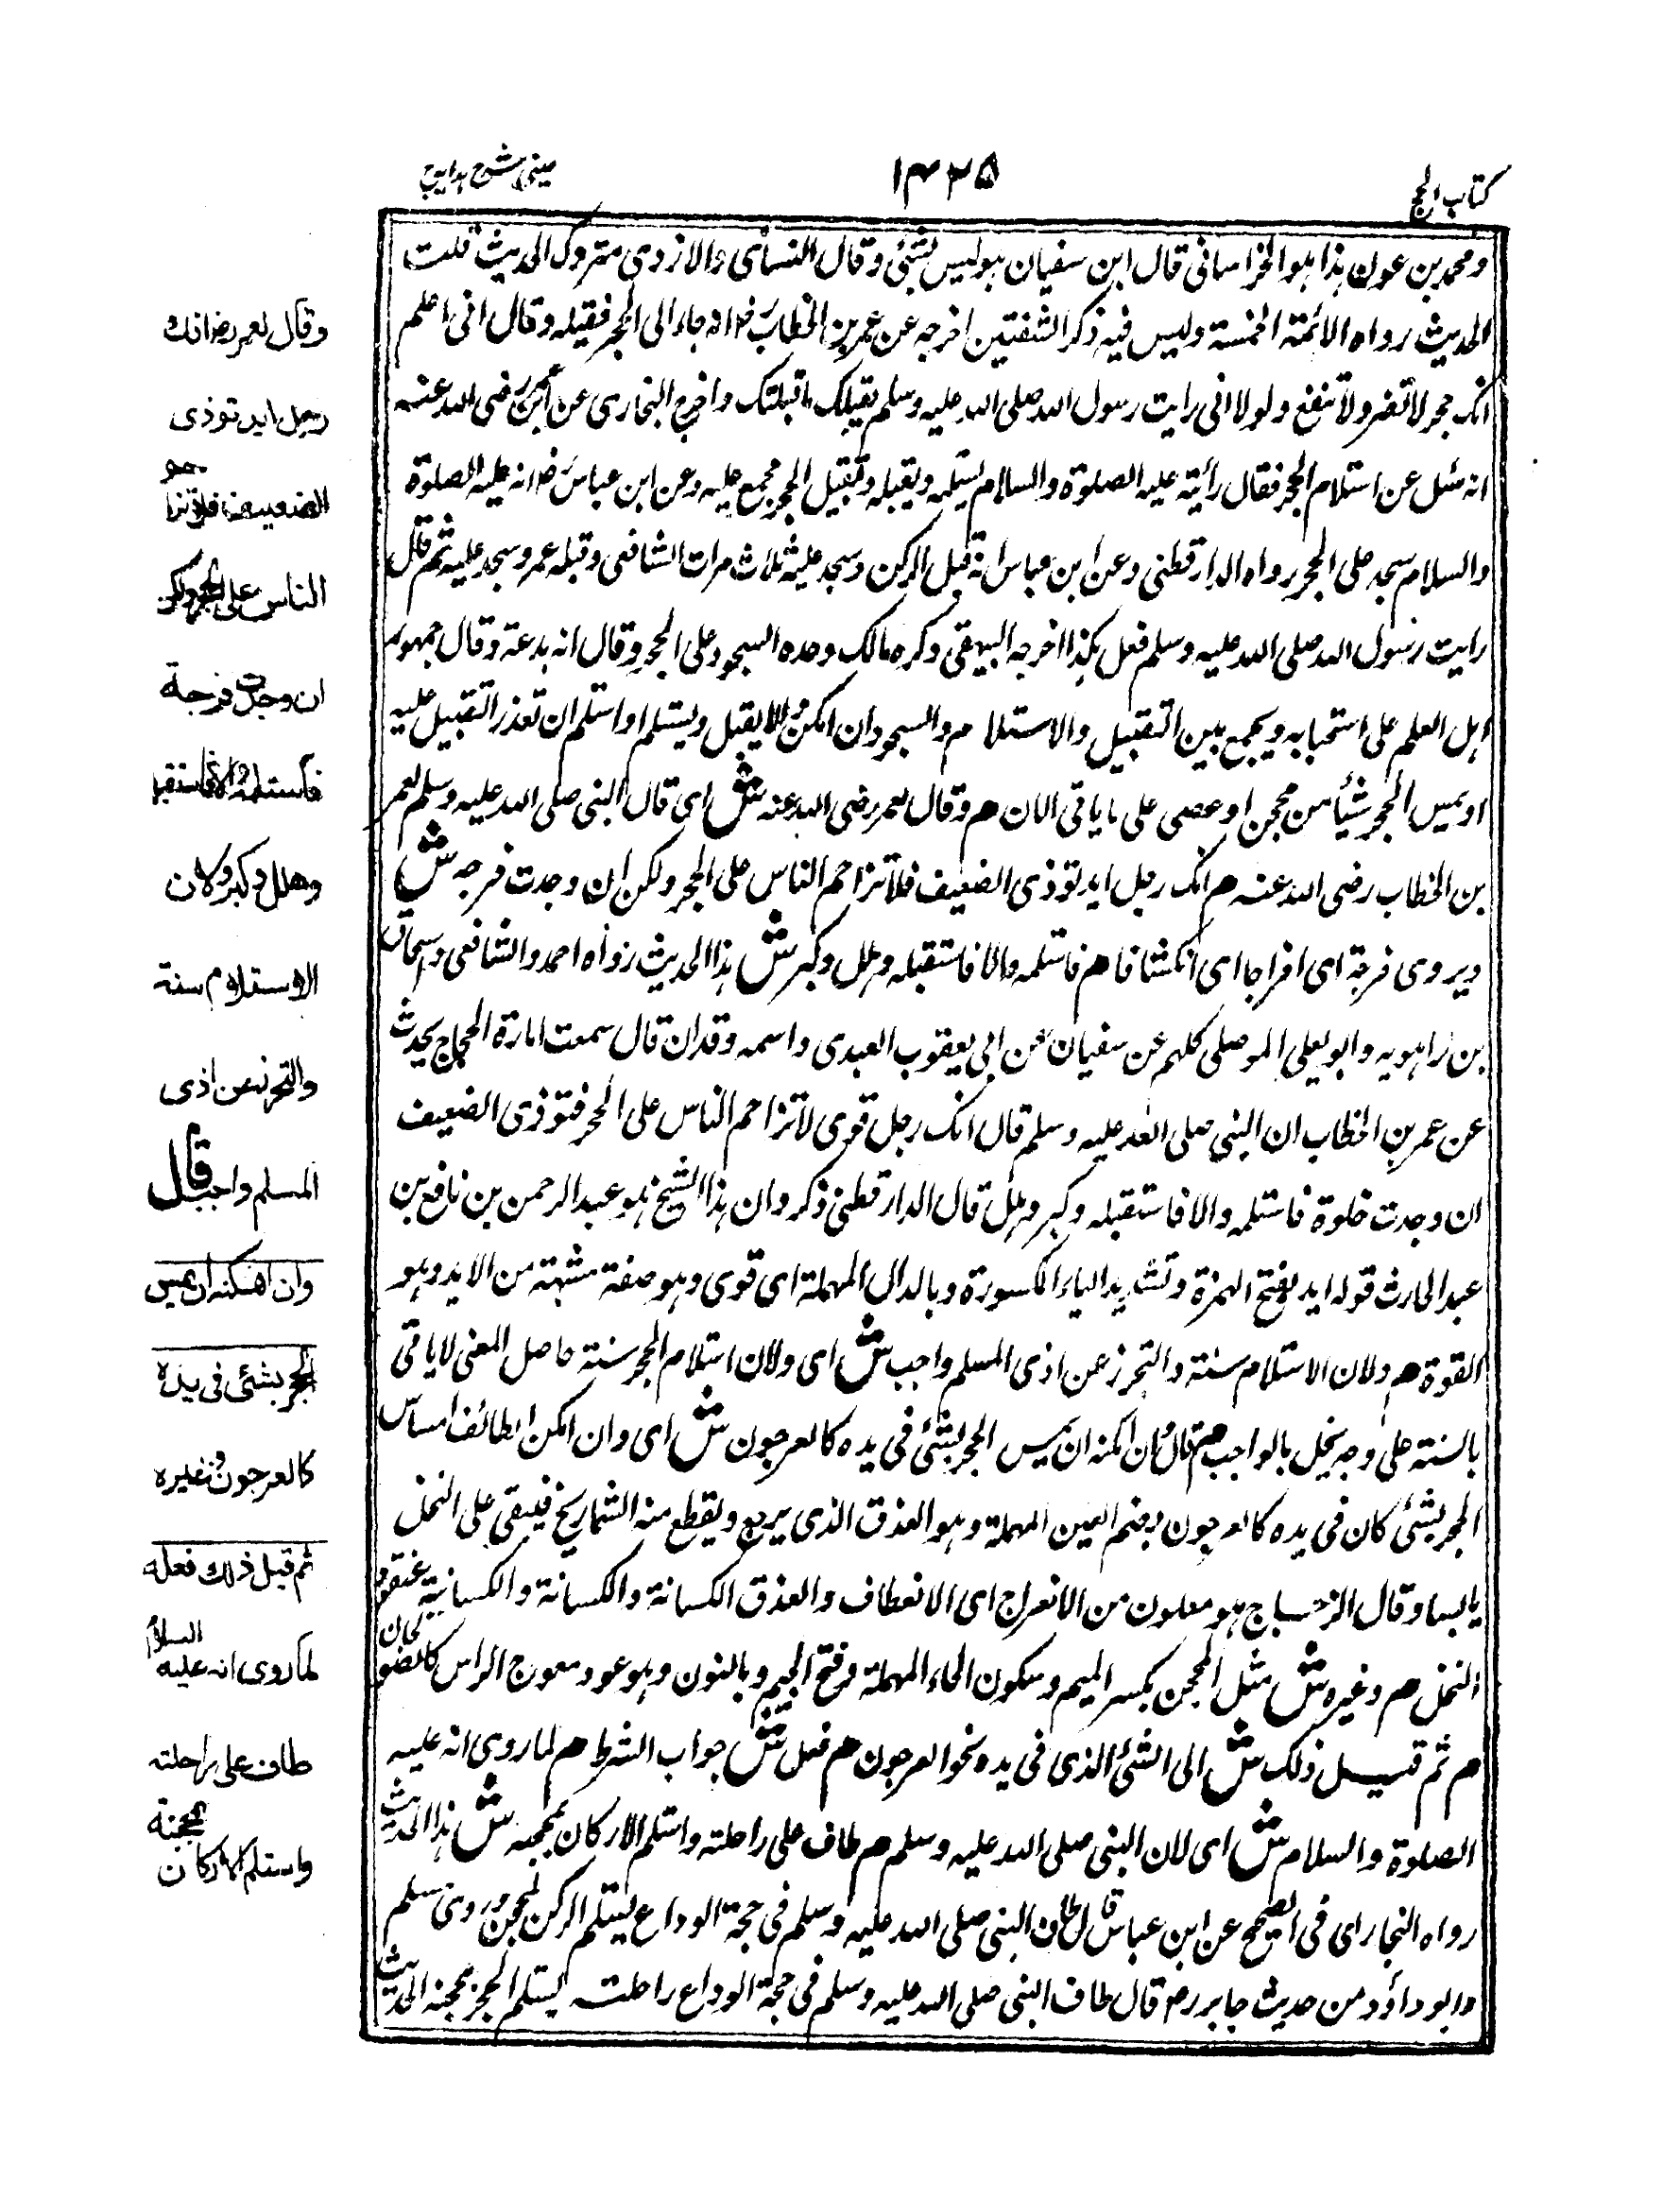 کتاب الحج
۱۴۲۵
عینی شرح ہدایہ
ومحمد بن عون ہذا ہو الخراسانی قال ابن سفیان ہو لیس بشئی وقال النسائی والازدی متروک الحدیث قلت
الحدیث رواہ الائمۃ الخمسۃ ولیس فیہ ذکر الشفتین اخرجہ عن عمر بن الخطاب رض انہ جاء الی الحجر فقبلہ وقال انی اعلم
انک حجر لا تضر ولا تنفع ولولا انی رایت رسول اللہ صلی اللہ علیہ وسلم یقبلک ما قبلتک واخرج البخاری عن عمر رضی اللہ عنہ
انہ سئل عن استلام الحجر فقال رأیتہ علیہ الصلوۃ والسلام یستلمہ ویقبلہ وتقبیل الحجر مجمع علیہ وعن ابن عباس رض انہ علیہ الصلوۃ
والسلام سجد علی الحجر رواہ الدارقطنی وعن ابن عباس انہ قبل الرکن وسجد علیہ ثلاث مرات الشافعی وقبلہ عمر وسجد علیہ ثم قال
رایت رسول اللہ صلی اللہ علیہ وسلم فعل ہکذا اخرجہ البیہقی وکرہ مالک وحدہ السجود علی الحجر وقال انہ بدعۃ وقال جمہور
اہل العلم علی استحبابہ ویجمع بین التقبیل والاستلام والسجود ان امکن والا یقبل ویستلم او استلم ان تعذر التقبیل علیہ
او یمس الحجر شیأ من محجن او عصی علی ما یاتی الان م وقال لعمر رضی اللہ عنہ ش ای قال النبی صلی اللہ علیہ وسلم لعمر
بن الخطاب رضی اللہ عنہ م انک رجل اید توذی الضعیف فلا تزاحم الناس علی الحجر ولکن ان وجدت فرجہ ش
ویروی فرجۃ ای افراجا ای انکشافا م فاستلمہ والا فاستقبلہ وہلل وکبر ش ہذا الحدیث رواہ احمد والشافعی واسحاق
بن راہویہ وابو یعلی الموصلی کلہم عن سفیان عن ابی یعقوب العبدی واسمہ وقدان قال سمعت امارۃ الحجاج یحدث
عن عمر بن الخطاب ان النبی صلی اللہ علیہ وسلم قال انک رجل قوی لا تزاحم الناس علی الحجر فتوذی الضعیف
ان وجدت خلوۃ فاستلمہ والا فاستقبلہ وکبر وہلل قال الدارقطنی ذکروا ان ہذا الشیخ ہو عبد الرحمن بن نافع بن
عبد الحارث قولہ اید بفتح الہمزۃ وتشدید الیاء المکسورۃ وبالدال المہملۃ ای قوی وہو صفۃ مشبہۃ من الاید وہو
القوۃ م ولان الاستلام سنۃ والتحرز عن اذی المسلم واجب ش ای ولان استلام الحجر سنۃ حاصل المعنی لا یاتی
بالسنۃ علی وجہ یخل بالواجب م قال وان امکنہ ان یمس الحجر بشئی فی یدہ کالعرجون ش ای وان امکن الطائف امساس
الحجر بشئی کان فی یدہ کالعرجون بضم العین المہملۃ وہو العذق الذی یرجع ویقطع منہ الشماریخ فیبقی علی النخل
یابسا وقال الزجاج ہو معلون من الانعراج ای الانعطاف والعذق الکسانۃ والکسانۃ والکسانیۃ عنقود
النخل م وغیرہ ش مثل المحجن بکسر المیم وسکون الحاء المہملۃ وفتح الجیم وبالنون وہو عود معوج الراس کالصولجان
م ثم قبل ذلک ش الی الشئی الذی فی یدہ نحو العرجون م فعل ش جواب الشرط م لما روی انہ علیہ
الصلوۃ والسلام ش ای لان النبی صلی اللہ علیہ وسلم م طاف علی راحلتہ واستلم الارکان بمحجنہ ش ہذا الحدیث
رواہ البخاری فی الصحیح عن ابن عباس قال طاف النبی صلی اللہ علیہ وسلم فی حجۃ الوداع یستلم الرکن بمحجن وروی مسلم
وابو داؤد من حدیث جابر رض قال طاف النبی صلی اللہ علیہ وسلم فی حجۃ الوداع راحلتہ یستلم الحجر بمحجنہ الحدیث
وقال لعمر رض انک
رجل اید توذی
الضعیف فلا تزاحم
الناس علی الحجر ولکن
ان وجدت فرجۃ
فاستلمہ والا فاستقبلہ
وھلل وکبر ولان
الاستلام سنۃ
والتحرز عن اذی
المسلم واجب قال
وان امکنہ ان یمس
الحجر بشئی فی یدہ
کالعرجون وغیرہ
ثم قبل ذلک فعلہ
لما روی انہ علیہ السلام
طاف علی راحلتہ
واستلم الارکان بمحجنہ